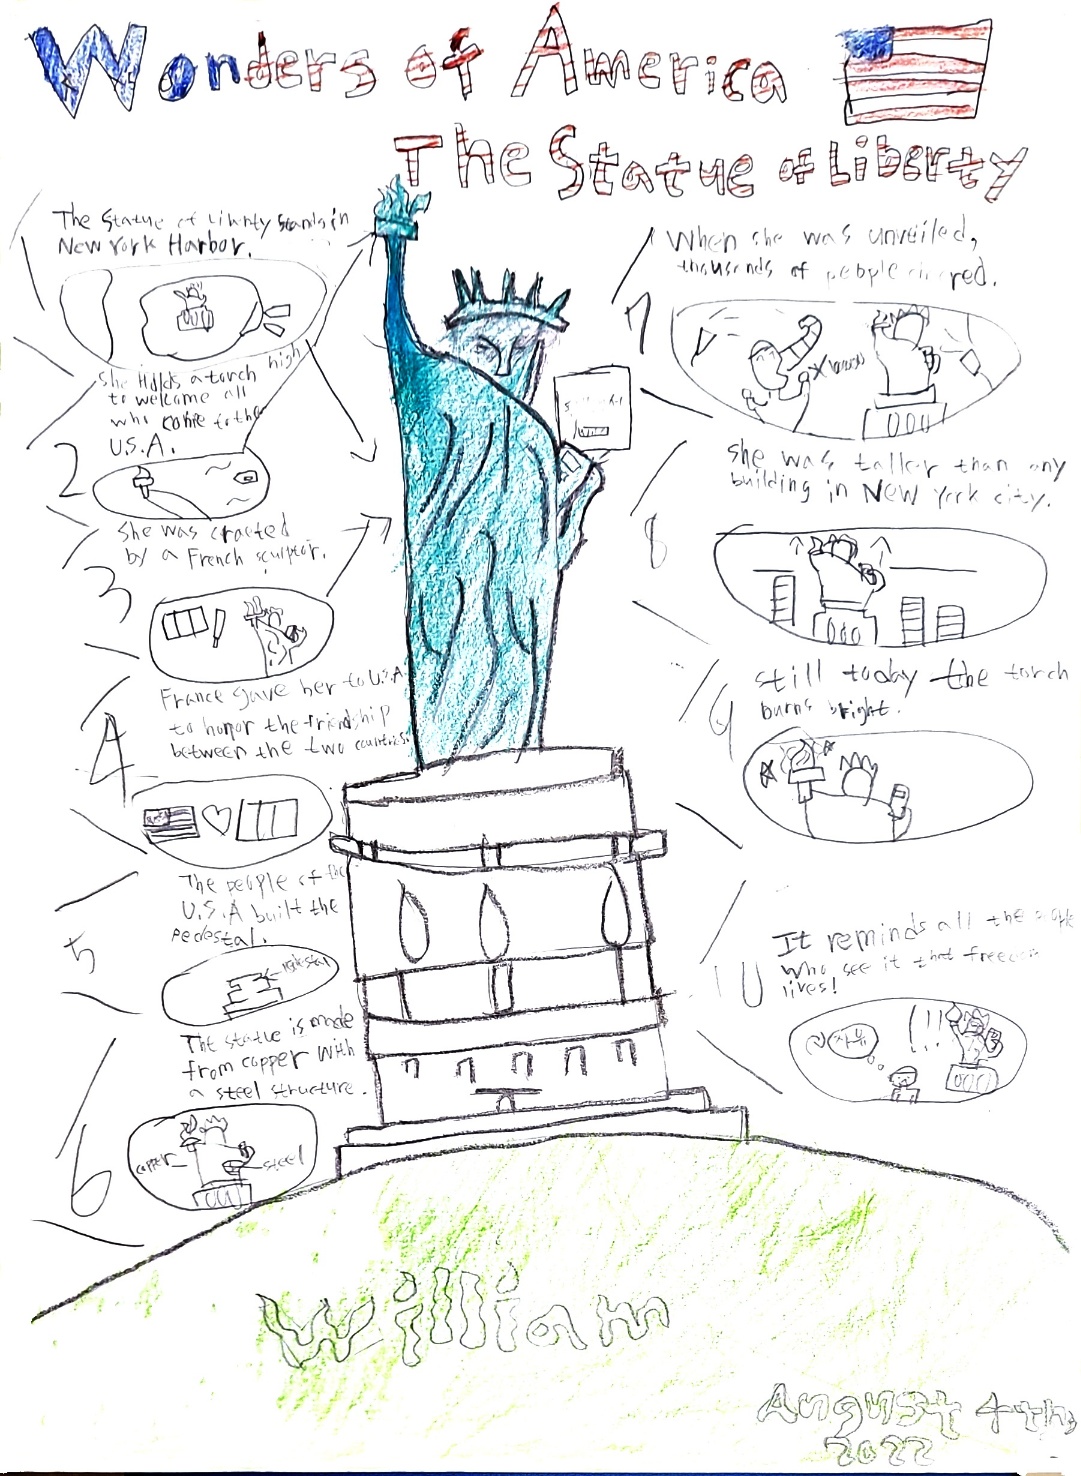 Wonders of America
The Statue of Liberty
The Statue of Liberty stands in
New York Harbor.
2
She Holds a torch high
to welcome all
who come to the
U.S.A.
3
She was cracted
by a French sculptor.
4
France gave her to U.S.A
to honor the friendship
between the two countries.
5
The people of the
U.S.A built the
pedestal.
pedestal
6
The statue is made
from copper with
a steel structure.
copper
steel
7
When she was unveiled,
thousands of people
8
She was taller than any
building in New York city.
9
still today the torch
burns bright.
10
It reminds all the people
who see it that freedom
lives!
자유
!!!
William
August 4th,
2022